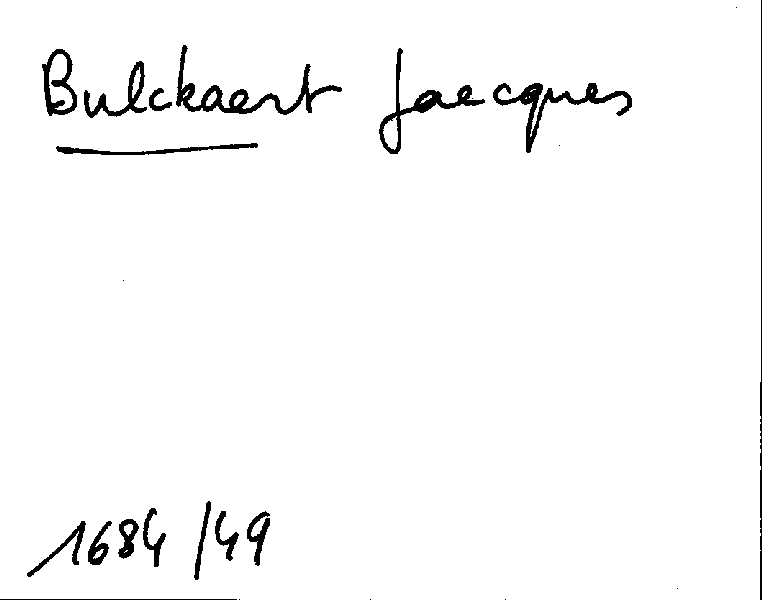 Bulckaert Jaecques
1684/49